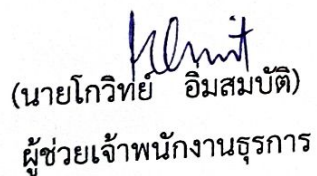 (นายโกวิทย์ อิ่มสมบัติ)
ผู้ช่วยเจ้าพนักงานธุรการ